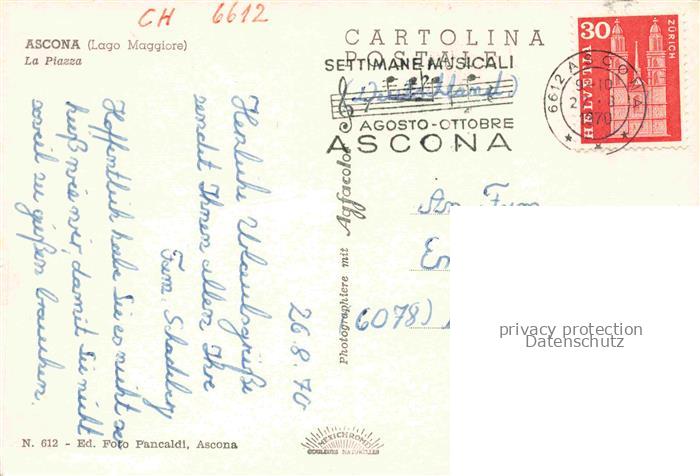 CH 6612
ASCONA (Lago Maggiore)
La Piazza
CARTOLINA
POSTALE
SETTIMANE MUSICALI
(Deutschland)
AGOSTO-OTTOBRE
ASCONA
6612 ASCONA
70
30
HELVETIA
ZÜRICH
26.8.70
Herzliche Urlaubsgrüße
sendet Ihnen allen Ihre
Fam.
Hoffentlich habe Sie es nicht so
heiß wie wir, damit Sie nicht
soviel zu gießen brauchen.
Photographiere mit Agfacolor
An Fam
6078)
privacy protection
Datenschutz
N. 612 - Ed. Foto Pancaldi, Ascona
MEXICHROME
COULEURS NATURELLES